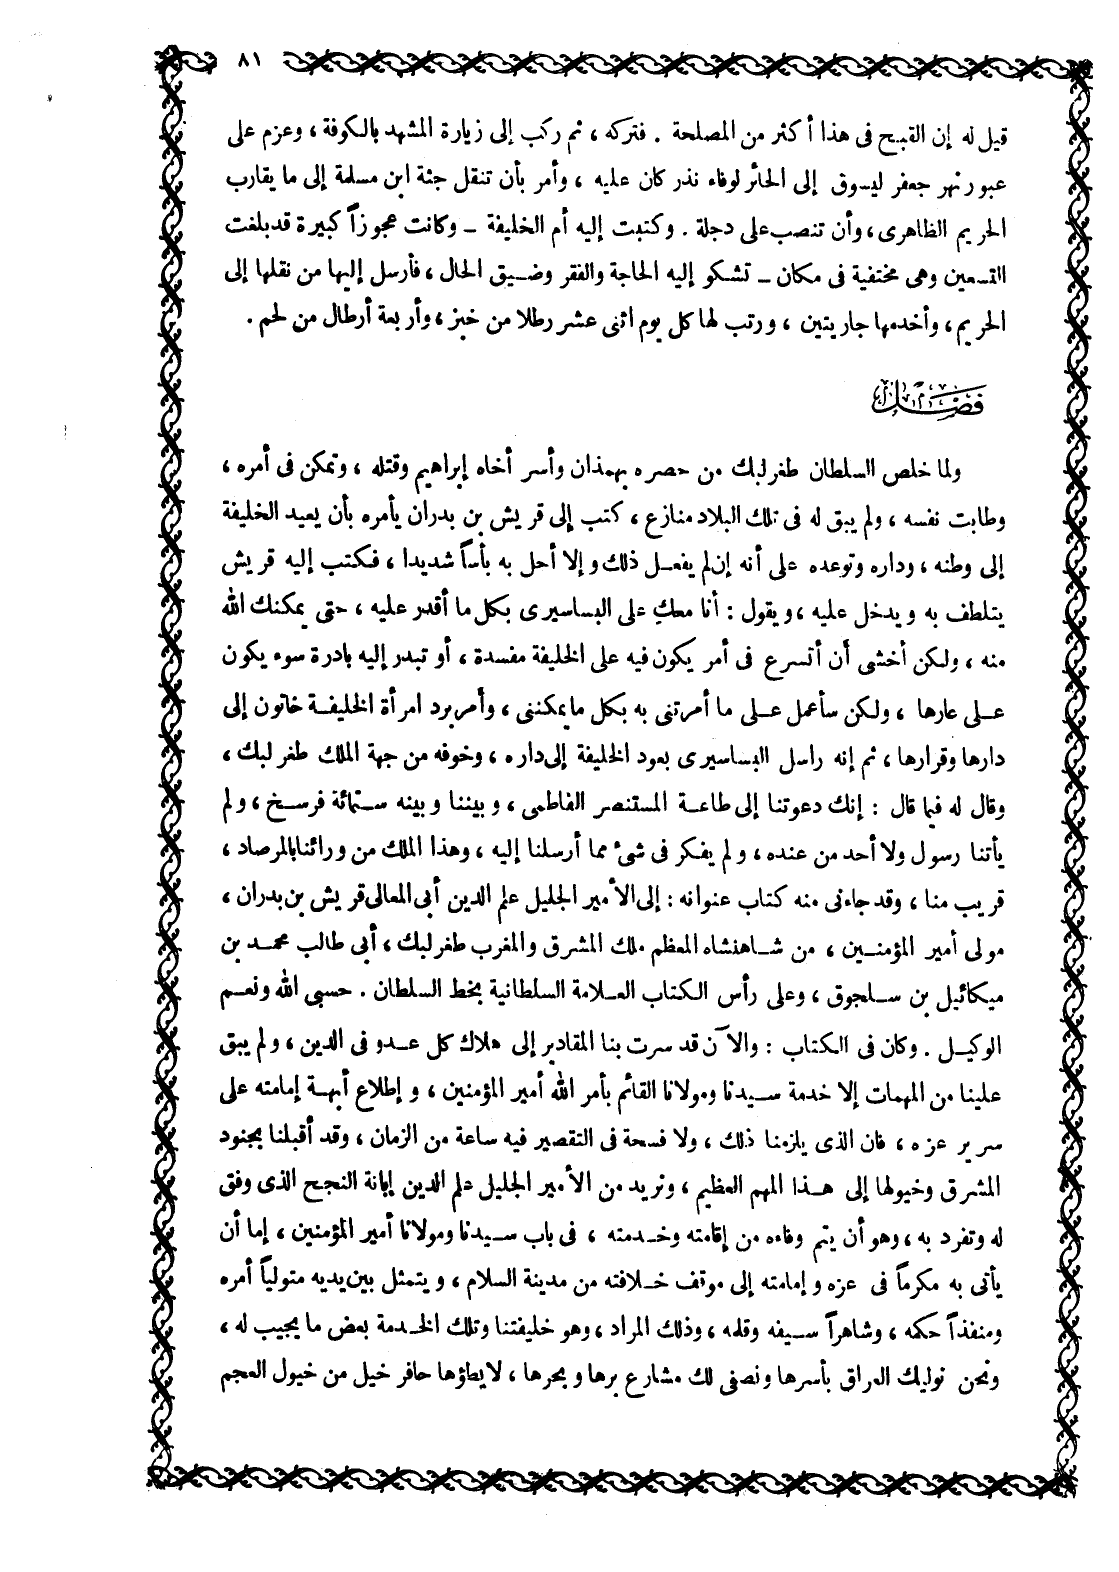 ٨١
قيل له إن القبيح فى هذا أكثر من المصلحة . فتركه ، ثم ركب إلى زيارة المشهد بالكوفة ، وعزم على
عبور نهر جعفر ليسوق إلى الحائر لوفاء نذر كان عليه ، وأمر بأن تنقل جثة ابن مسلمة إلى ما يقارب
الحريم الظاهرى ، وأن تنصب على دجلة . وكتبت إليه أم الخليفة – وكانت عجوزاً كبيرة قد بلغت
التسعين وهى مختفية فى مكان – تشكو إليه الحاجة والفقر وضيق الحال ، فأرسل إليها من نقلها إلى
الحريم ، وأخدمها جاريتين ، ورتب لها كل يوم اثنى عشر رطلا من خبز ، وأربعة أرطال من لحم .
فصل
ولما خلص السلطان طغرلبك من حصره بهمذان وأسر أخاه إبراهيم وقتله ، وتمكن فى أمره ،
وطابت نفسه ، ولم يبق له فى تلك البلاد منازع ، كتب إلى قريش بن بدران يأمره بأن يعيد الخليفة
إلى وطنه ، وداره وتوعده على أنه إن لم يفعل ذلك وإلا أحل به بأساً شديدا ، فكتب إليه قريش
يتلطف به ويدخل عليه ، ويقول : أنا معك على البساسيرى بكل ما أقدر عليه ، حتى يمكنك الله
منه ، ولكن أخشى أن أتسرع فى أمر يكون فيه على الخليفة مفسدة ، أو تبدر إليه بادرة سوء يكون
على عارها ، ولكن سأعمل على ما أمرتنى به بكل ما يمكننى ، وأمر برد امرأة الخليفة خاتون إلى
دارها وقرارها ، ثم إنه راسل البساسيرى بعود الخليفة إلى داره ، وخوفه من جهة الملك طغرلبك ،
وقال له فيما قال : إنك دعوتنا إلى طاعة المستنصر الفاطمى ، وبيننا وبينه ستمائة فرسخ ، ولم
يأتنا رسول ولا أحد من عنده ، ولم يفكر فى شىء مما أرسلنا إليه ، وهذا الملك من ورائنا بالمرصاد ،
قريب منا ، وقد جاءنى منه كتاب عنوانه : إلى الأمير الجليل علم الدين أبى المعالى قريش بن بدران ،
مولى أمير المؤمنين ، من شاهنشاه المعظم ملك المشرق والمغرب طغرلبك ، أبى طالب محمد بن
ميكائيل بن سلجوق ، وعلى رأس الكتاب العلامة السلطانية بخط السلطان . حسبى الله ونعم
الوكيل . وكان فى الكتاب : والآن قد سرت بنا المقادير إلى هلاك كل عدو فى الدين ، ولم يبق
علينا من المهمات إلا خدمة سيدنا ومولانا القائم بأمر الله أمير المؤمنين ، وإطلاع أبهة إمامته على
سرير عزه ، فان الذى يلزمنا ذلك ، ولا فسحة فى التقصير فيه ساعة من الزمان ، وقد أقبلنا بجنود
المشرق وخيولها إلى هذا المهم العظيم ، ونريد من الأمير الجليل علم الدين إبانة النجح الذى وفق
له وتفرد به ، وهو أن يتم وفاءه من إقامته وخدمته ، فى باب سيدنا ومولانا أمير المؤمنين ، إما أن
يأتى به مكرماً فى عزه وإمامته إلى موقف خلافته من مدينة السلام ، ويتمثل بين يديه متولياً أمره
ومنفذاً حكمه ، وشاهراً سيفه وقلمه ، وذلك المراد ، وهو خليفتنا وتلك الخدمة بعض ما يجيب له ،
ونحن نوليك العراق بأسرها ونصفى لك مشارع برها وبحرها ، لا يطؤها حافر خيل من خيول العجم